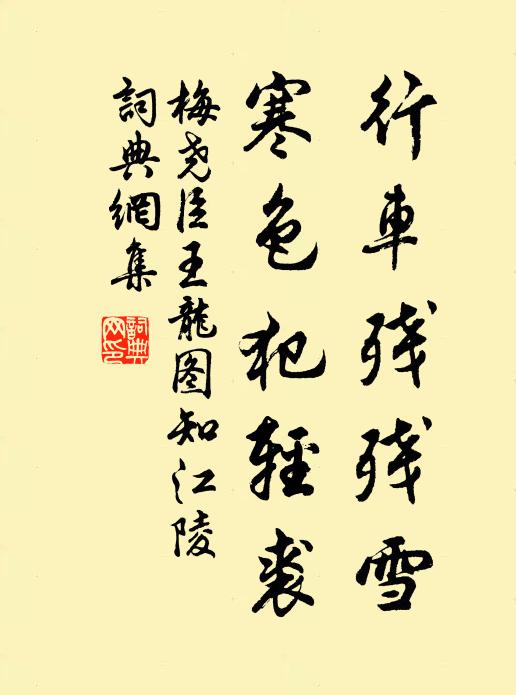 行車殘殘雪
寒色犯輕裘
梅尧臣王龍图知江陵
詞典網集
詞典網印